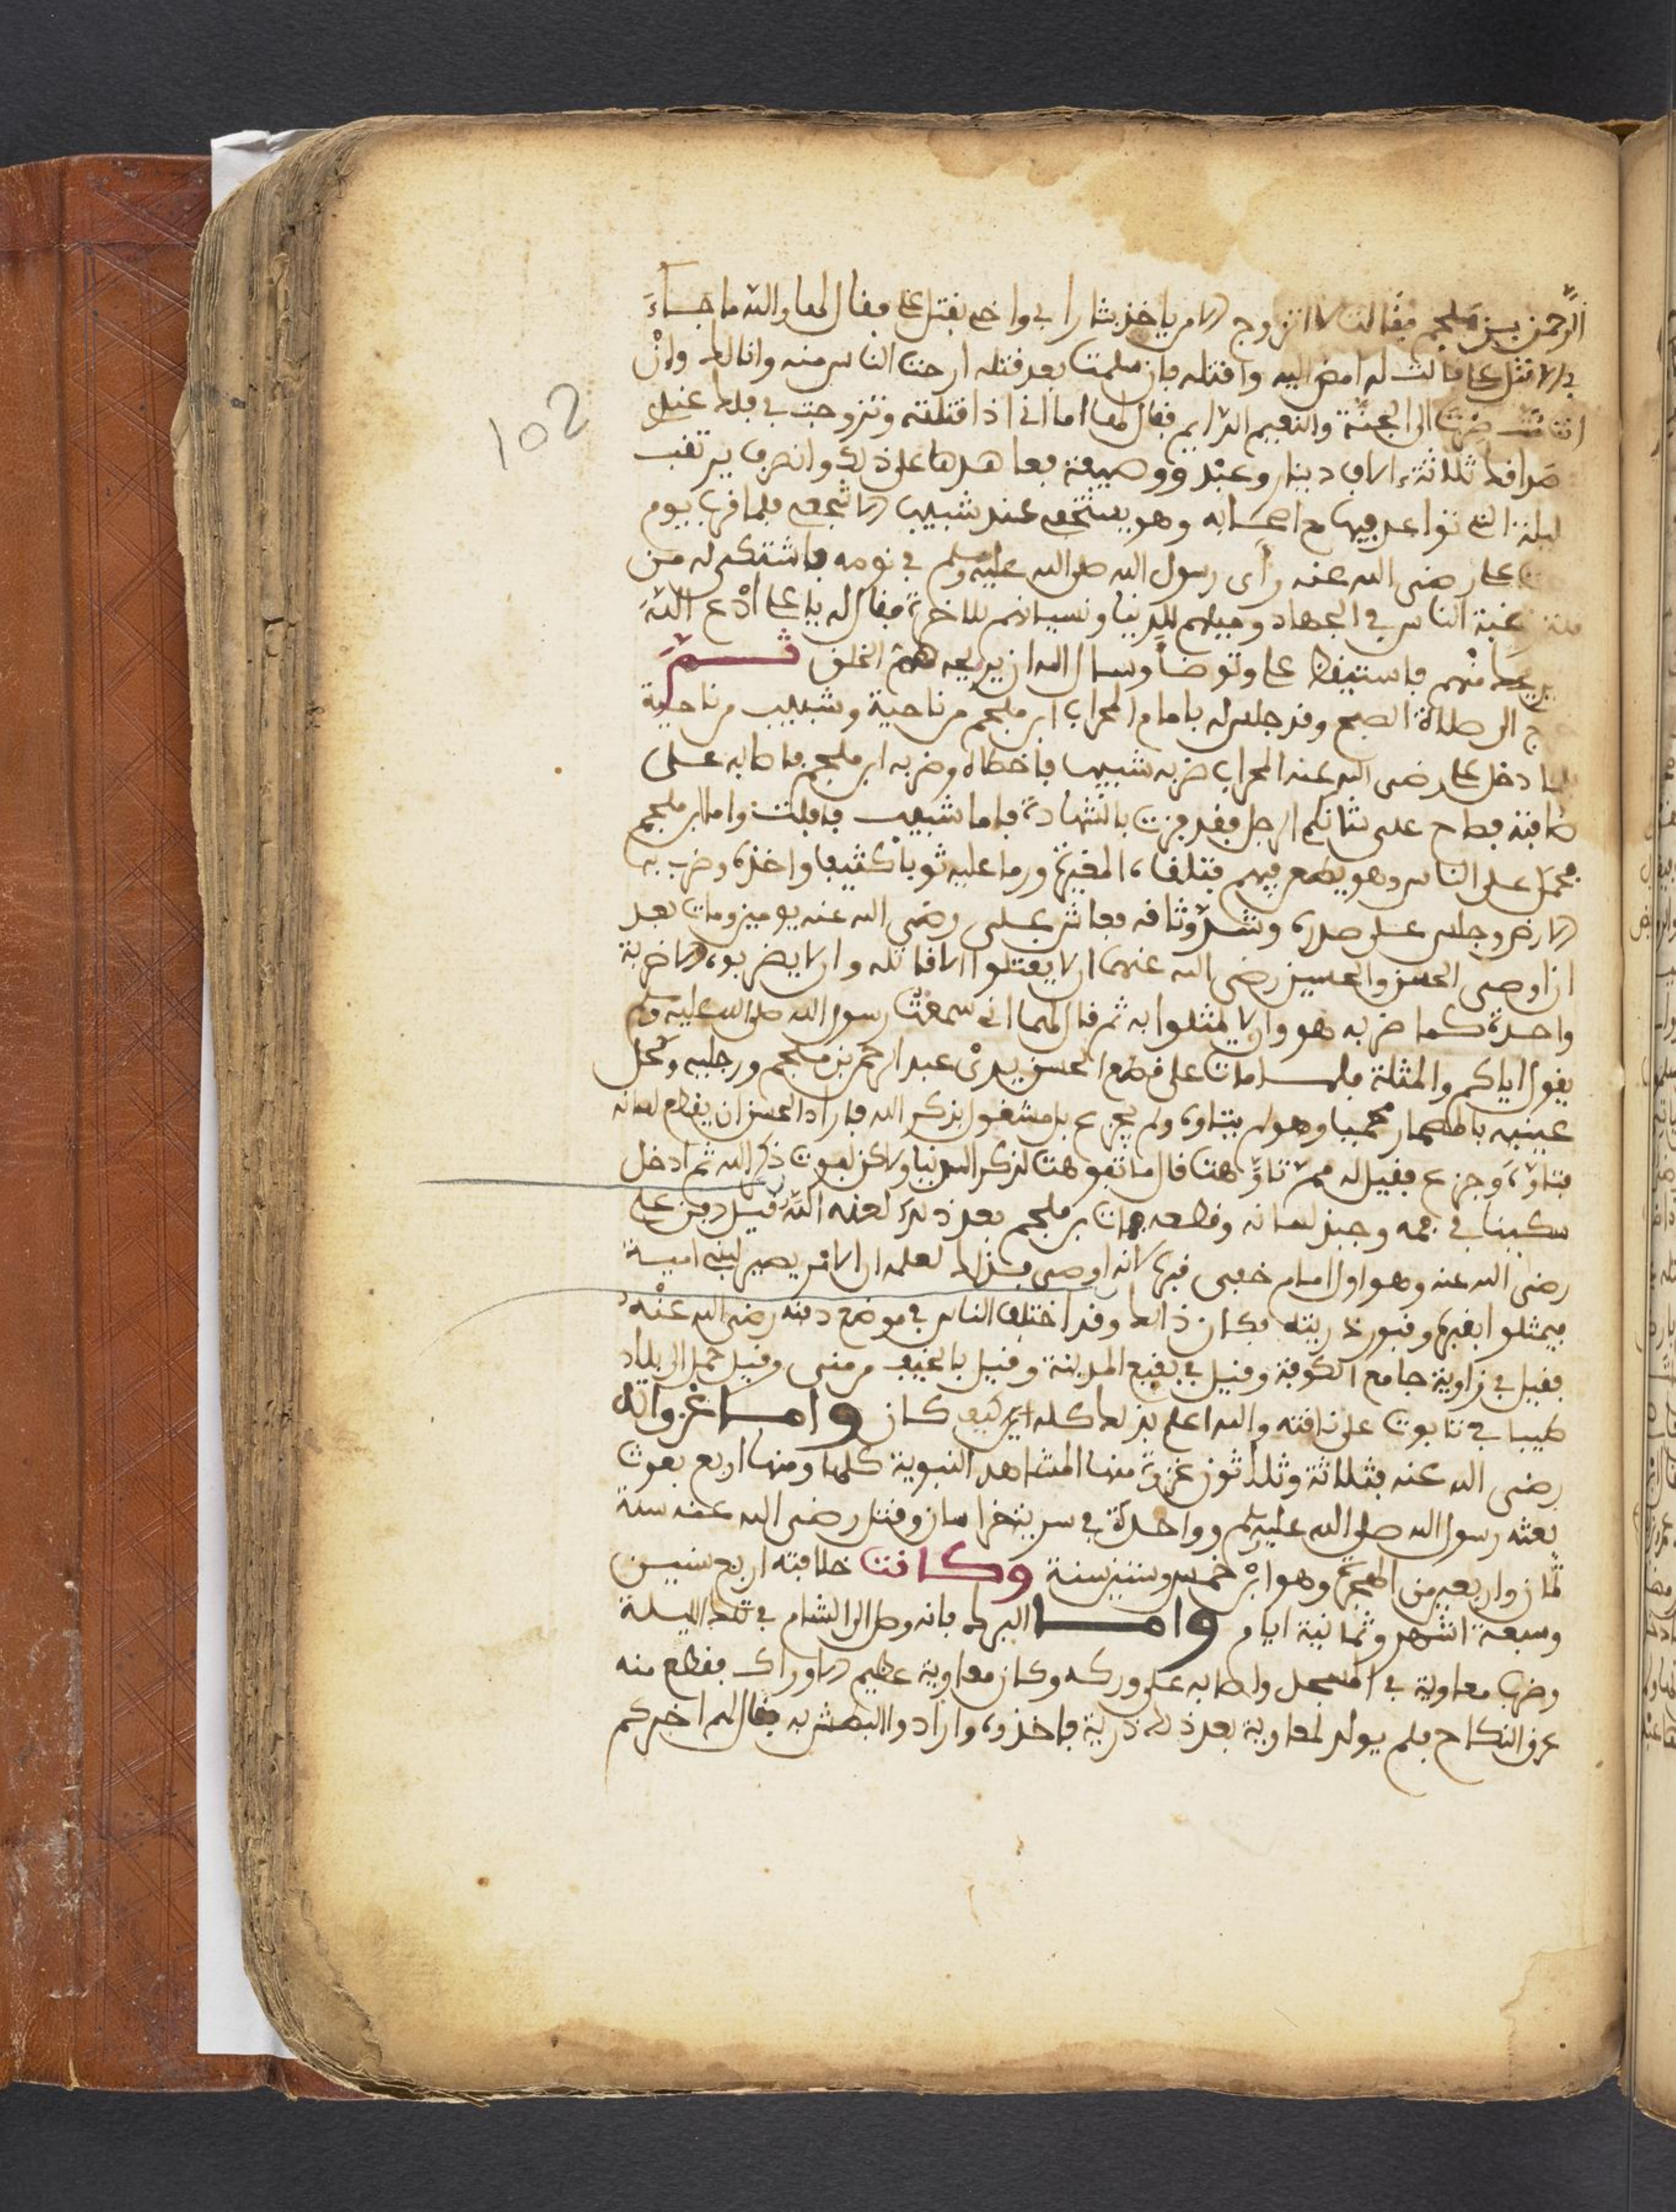 الرحمن بن ملجم فقالت لا اتزوج الا من ياخذ بثار ابي واخي بقتل علي فقال لها والله ما جاء
بي الا قتل علي قالت له امض اليه واقتله فان سلمت بعد قتله ارحت الناس منه وانا لك وان
انت مت صرت الى الجنة والنعيم الدايم فقال لها اما اني اذا قتلته وتزوجت بي فلك عندي
صداقك ثلاثة ءالاف دينار وعبد ووصيفة فعاهدها على ذلك وانصرف يرتقب
ليلة التي تواعد فيها مع اصحابه وهو يستخفي عند شبيب الاشجعي فلما قرب يوم
علي رضي الله عنه رأى رسول الله صلى الله عليه وسلم في نومه فاشتكى له من
قلة رغبة الناس في الجهاد وميلهم للدنيا ونسيانهم للاخرة فقال له يا علي ادع الله
يريحك منهم فاستيقظ علي وتوضأ وسال الله ان يريحه من الخلق ثم
خرج الى صلاة الصبح وقد جلس له بامام المحراب ابن ملجم من ناحية وشبيب من ناحية
فلما دخل علي رضي الله عنه المحراب ضربه شبيب فاخطاه وضربه ابن ملجم فاصابه على
صاقبه فصاح علي شانكم الرجل فقد فزت بالشهادة فاما شبيب فافلت واما ابن ملجم
فحمل على الناس وهو يطمع فيهم فتلقاه المغيرة ورما عليه ثوبا كثيفا واخذه وضرب به
الارض وجلس على صدره وشد وثاقه فعاش علي رضي الله عنه يومين ومات بعد
ان اوصى الحسن والحسين رضي الله عنهما ان لا يقتلوا الا قاتله وان لا يضربوه الا ضربة
واحدة كما ضربه هو وان لا يمثلوا به ثم قال لهما اني سمعت رسول الله صلى الله عليه وسلم
يقول اياكم والمثلة فلما مات علي قطع الحسن يدي عبد الرحمن بن ملجم ورجليه وكحل
عينيه بمسمار محميا وهو لم يتاوه ولم يجزع بل مشغول بذكر الله فاراد الحسن ان يقطع لسانه
فتاوه وجزع فقيل له مم تاوهت قال ما تاوهت لذكر الدنيا ولاكن لفوت ذكر الله ثم ادخل
سكينا في فمه وجبذ لسانه وقطعه فمات بن ملجم بعد ذلك لعنه الله قيل دفن علي
رضي الله عنه وهو اول امام خفى قبره لانه اوصى بذلك لعلمه ان الامر يصير لبني امية
فيمثلوا بقبره وقبور ذريته فكان ذالك وقد اختلف الناس في موضع دفنه رضي الله عنه
فقيل في زاوية جامع الكوفة وقيل في بقيع المدينة وقيل بالخيف من منى وقيل حمل الى بلاد
طيبا في تابوت على ناقته والله اعلم بذلك كله اين كيف كان واما غزواته
رضي الله عنه فثلاثة وثلاثون غزوة منها المشاهد النبوية كلها ومنها اربع بعوث
بعثه رسول الله صلى الله عليه وسلم وواحدة في سرية خراسان وقتل رضي الله عنه سنة
ثمان واربعين من الهجرة وهو ابن خمس وستين سنة وكانت خلافته اربع سنين
وسبعة اشهر وثمانية ايام واما البرك فانه وصل الى الشام في تلك الليلة
وضرب معاوية في المسجد واصابه على وركه وكان معاوية عظيم الاوراك فقطع منه
عرق النكاح فلم يولد لمعاوية بعد ذلك ذرية فاخذوه وارادوا البطش به فقال لهم اخبركم
102